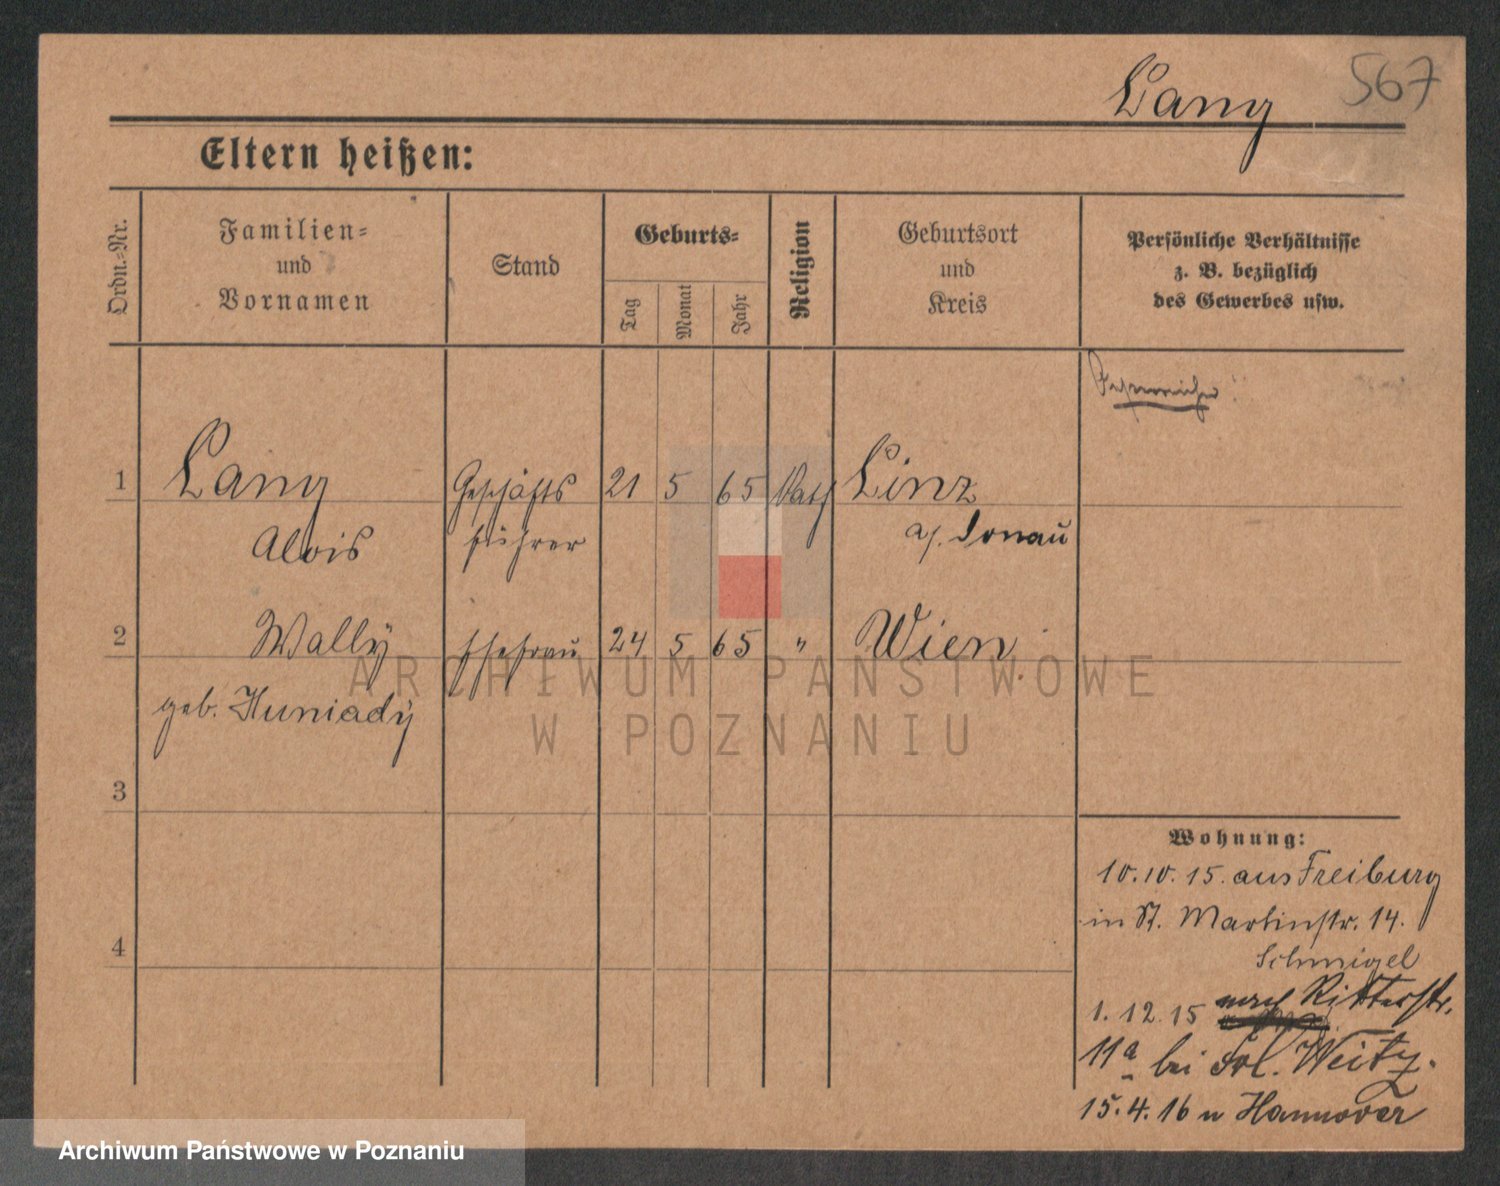 Lang
567
Eltern heißen:
Ordn.=Nr.
Familien=
und
Vornamen
Stand
Geburts=
Tag
Monat
Jahr
Religion
Geburtsort
und
Kreis
Persönliche Verhältnisse
z. B. bezüglich
des Gewerbes usw.
Österreicher
1 Lang Geschäfts 21 5 65 Kath Linz
Alois führer a/. Donau
2 Wally Ehefrau 24 5 65 " Wien
geb. Huniady
3
4
Wohnung:
10.10.15. aus Freiburg
in St. Martinstr. 14.
Schmigel
1.12.15 nach Ritterstr.
11a bei Weitz.
15.4.16 n Hannover
ARCHIWUM PAŃSTWOWE
W POZNANIU
Archiwum Państwowe w Poznaniu